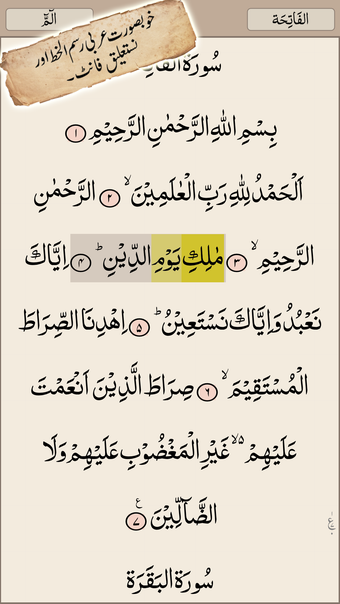 الٓمّٓ
الفَاتِحَة
خوبصورت عربی رسم الخط اور
نستعلیق فانٹ۔
سُورَة الفَاتِ
بِسْمِ اللّٰهِ الرَّحْمٰنِ الرَّحِيْمِ ۱
اَلْحَمْدُ لِلّٰهِ رَبِّ الْعٰلَمِيْنَ ۙ ۲ الرَّحْمٰنِ
الرَّحِيْمِ ۙ ۳ مٰلِكِ يَوْمِ الدِّيْنِ ؕ ۴ اِيَّاكَ
نَعْبُدُ وَاِيَّاكَ نَسْتَعِيْنُ ؕ ۵ اِهْدِنَا الصِّرَاطَ
الْمُسْتَقِيْمَ ۙ ۶ صِرَاطَ الَّذِيْنَ اَنْعَمْتَ
عَلَيْهِمْ ۙ۵ غَيْرِ الْمَغْضُوْبِ عَلَيْهِمْ وَلَا
الضَّآلِّيْنَ ۷ ع
سُورَة البَقَرَة